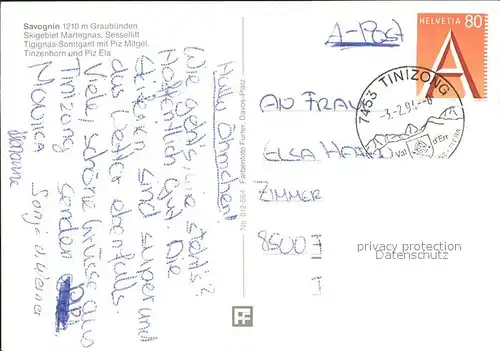 Savognin 1210 m Graubünden
Skigebiet Martegnas, Sessellift
Tigignas-Somtgant mit Piz Mitgel,
Tinzenhorn und Piz Ela
Hallo Öhmchen!
Wie geht's, wie steht's?
Hoffentlich gut. Die
sind super und
das Wetter ebenfalls.
Viele, schöne Grüsse aus
Tinizong senden
Monica Sonja
No. 012.664 Farbenfoto Furter, Davos-Platz
FF
A-Post
HELVETIA 80
A
7453 TINIZONG
Val d'Err
AN FRAU
ELSA
ZIMMER
8500
privacy protection
Datenschutz